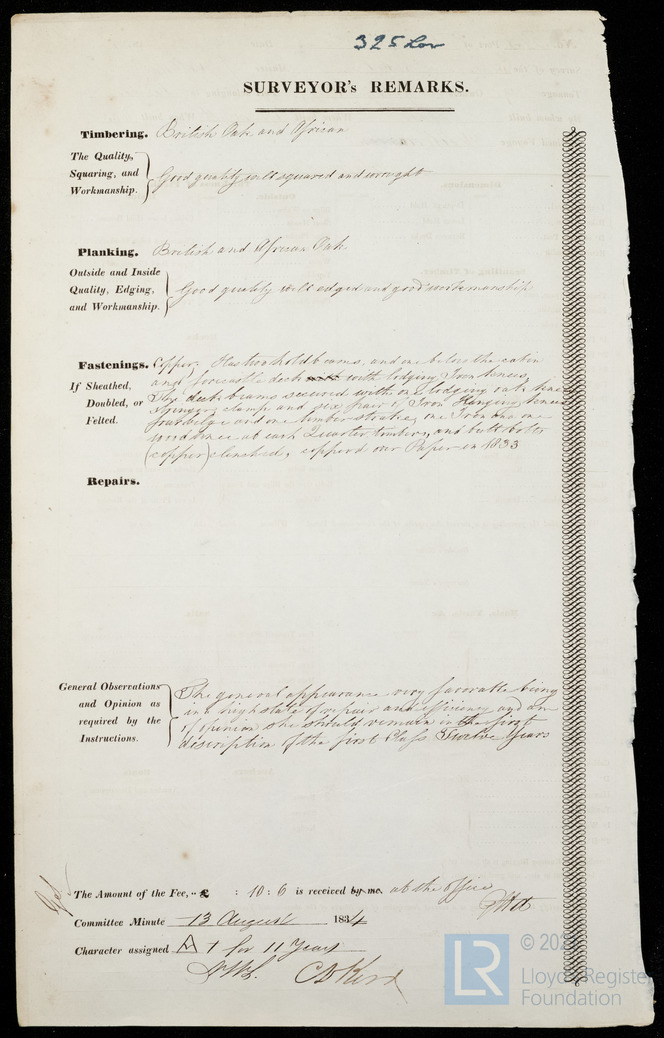 325 Lon
SURVEYOR's REMARKS.
Timbering. British Oak and African
The Quality, Squaring, and Workmanship. Good quality well squared and wrought
Planking. British and African Oak
Outside and Inside Quality, Edging, and Workmanship. Good quality well edged and good workmanship
Fastenings. Copper, Has two hold beams, and one below the cabin
If Sheathed, Doubled, or Felted.
and forecastle deck with lodging Iron knees,
deck beams secured with lodging oak knees
clamp and six pair of Iron Hanging knees
four bilge and one limber strake, one Iron and one
wood knee at each Quarter, timbers, and butt bolts
(copper) clenched, copperd over Paper in 1833
Repairs.
General Observations and Opinion as required by the Instructions.
The general appearance very favorable being
in a high state of repair and efficiency and am
of opinion she should remain in the first
discription of the first Class Twelve Years
The Amount of the Fee, .. £ : 10 : 6 is received by me. at the office
Committee Minute 13 August 1834
Character assigned A 1 for 11 Years
LR
Lloyd's Register
Foundation